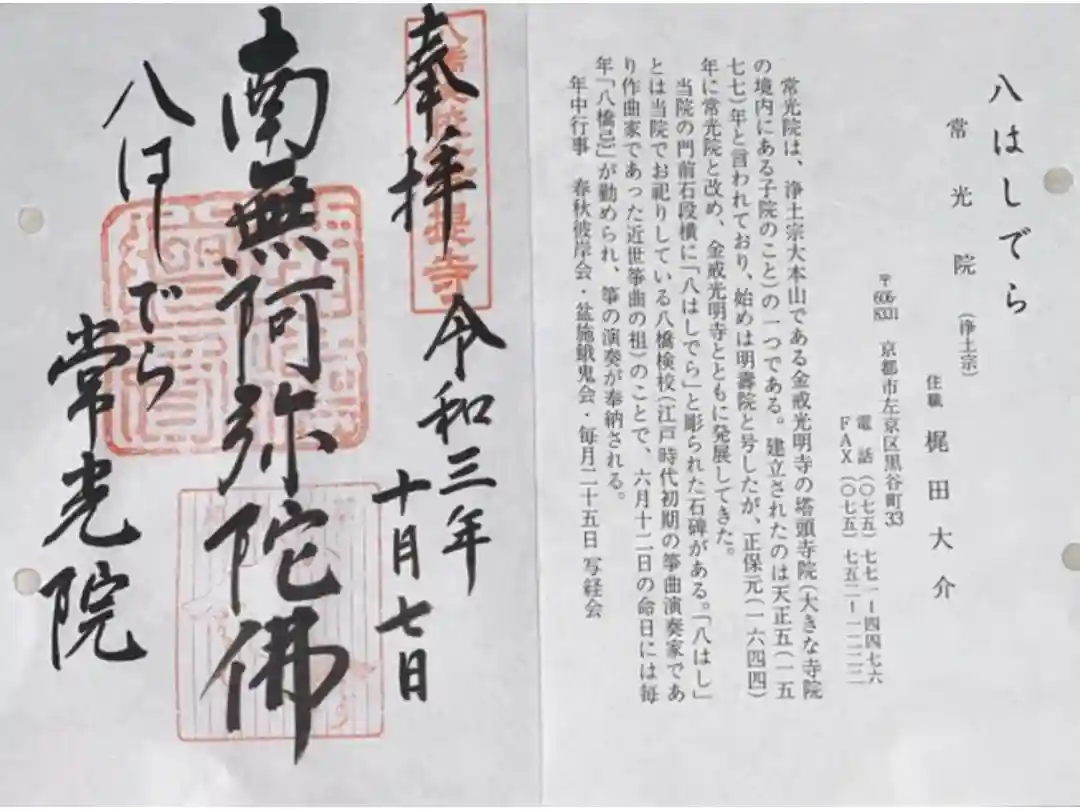 八はしでら
常光院（浄土宗）
住職 梶田大介
〒606-8331 京都市左京区黒谷町33
電話（〇七五）七七一-四四七六
FAX（〇七五）七五二-一二二二
常光院は、浄土宗大本山である金戒光明寺の塔頭寺院（大きな寺院
の境内にある子院のこと）の一つである。建立されたのは天正五（一五
七七）年と言われており、始めは明壽院と号したが、正保元（一六四四）
年に常光院と改め、金戒光明寺とともに発展してきた。
当院の門前石段横に「八はしでら」と彫られた石碑がある。「八はし」
とは当院でお祀りしている八橋検校（江戸時代初期の箏曲演奏家であ
り作曲家であった近世箏曲の祖）のことで、六月十二日の命日には毎
年「八橋忌」が勤められ、箏の演奏が奉納される。
年中行事 春秋彼岸会・盆施餓鬼会・毎月二十五日 写経会
奉拝
令和三年
十月七日
南無阿弥陀佛
八はしでら
常光院